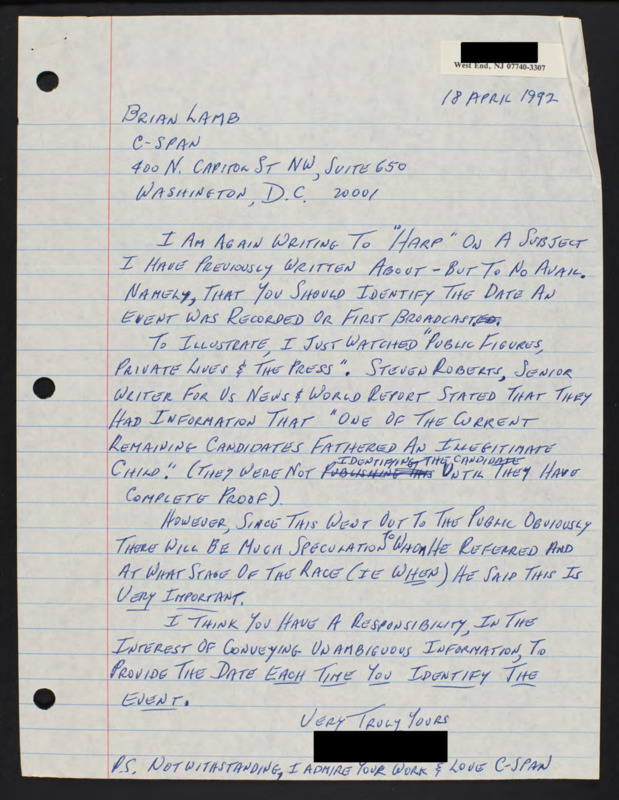 West End, NJ 07740-3307
18 APRIL 1992
BRIAN LAMB
C-SPAN
400 N. CAPITOL ST NW, SUITE 650
WASHINGTON, D.C. 20001
I AM AGAIN WRITING TO "HARP" ON A SUBJECT
I HAVE PREVIOUSLY WRITTEN ABOUT - BUT TO NO AVAIL.
NAMELY, THAT YOU SHOULD IDENTIFY THE DATE AN
EVENT WAS RECORDED OR FIRST BROADCAST.
TO ILLUSTRATE, I JUST WATCHED "PUBLIC FIGURES,
PRIVATE LIVES & THE PRESS". STEVEN ROBERTS, SENIOR
WRITER FOR US NEWS & WORLD REPORT STATED THAT THEY
HAD INFORMATION THAT "ONE OF THE CURRENT
REMAINING CANDIDATES FATHERED AN ILLEGITIMATE
CHILD." (THEY WERE NOT IDENTIFYING THE CANDIDATE UNTIL THEY HAVE
COMPLETE PROOF).
HOWEVER, SINCE THIS WENT OUT TO THE PUBLIC OBVIOUSLY
THERE WILL BE MUCH SPECULATION TO WHOM HE REFERRED AND
AT WHAT STAGE OF THE RACE (IE WHEN) HE SAID THIS IS
VERY IMPORTANT.
I THINK YOU HAVE A RESPONSIBILITY, IN THE
INTEREST OF CONVEYING UNAMBIGUOUS INFORMATION, TO
PROVIDE THE DATE EACH TIME YOU IDENTIFY THE
EVENT.
VERY TRULY YOURS
P.S. NOTWITHSTANDING, I ADMIRE YOUR WORK & LOVE C-SPAN